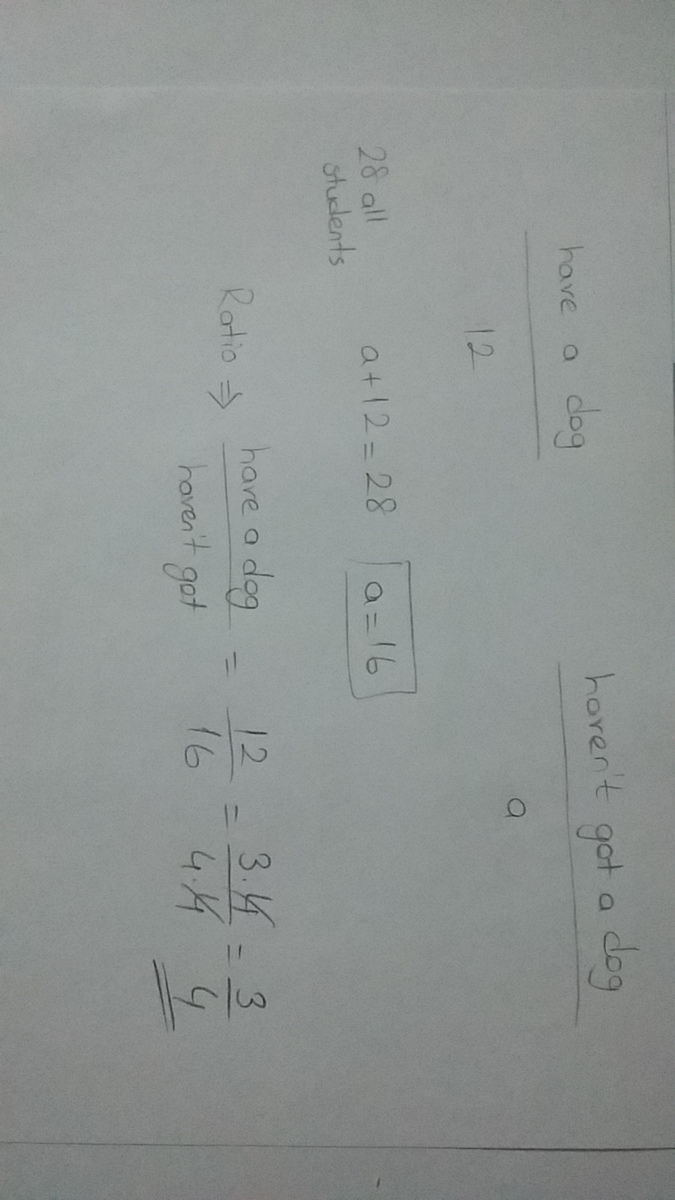 have a dog haven't got a dog
12 a
28 all students a+12=28 a=16
Ratio ⇒ have a dog / haven't got = 12/16 = 3.4/4.4 = 3/4